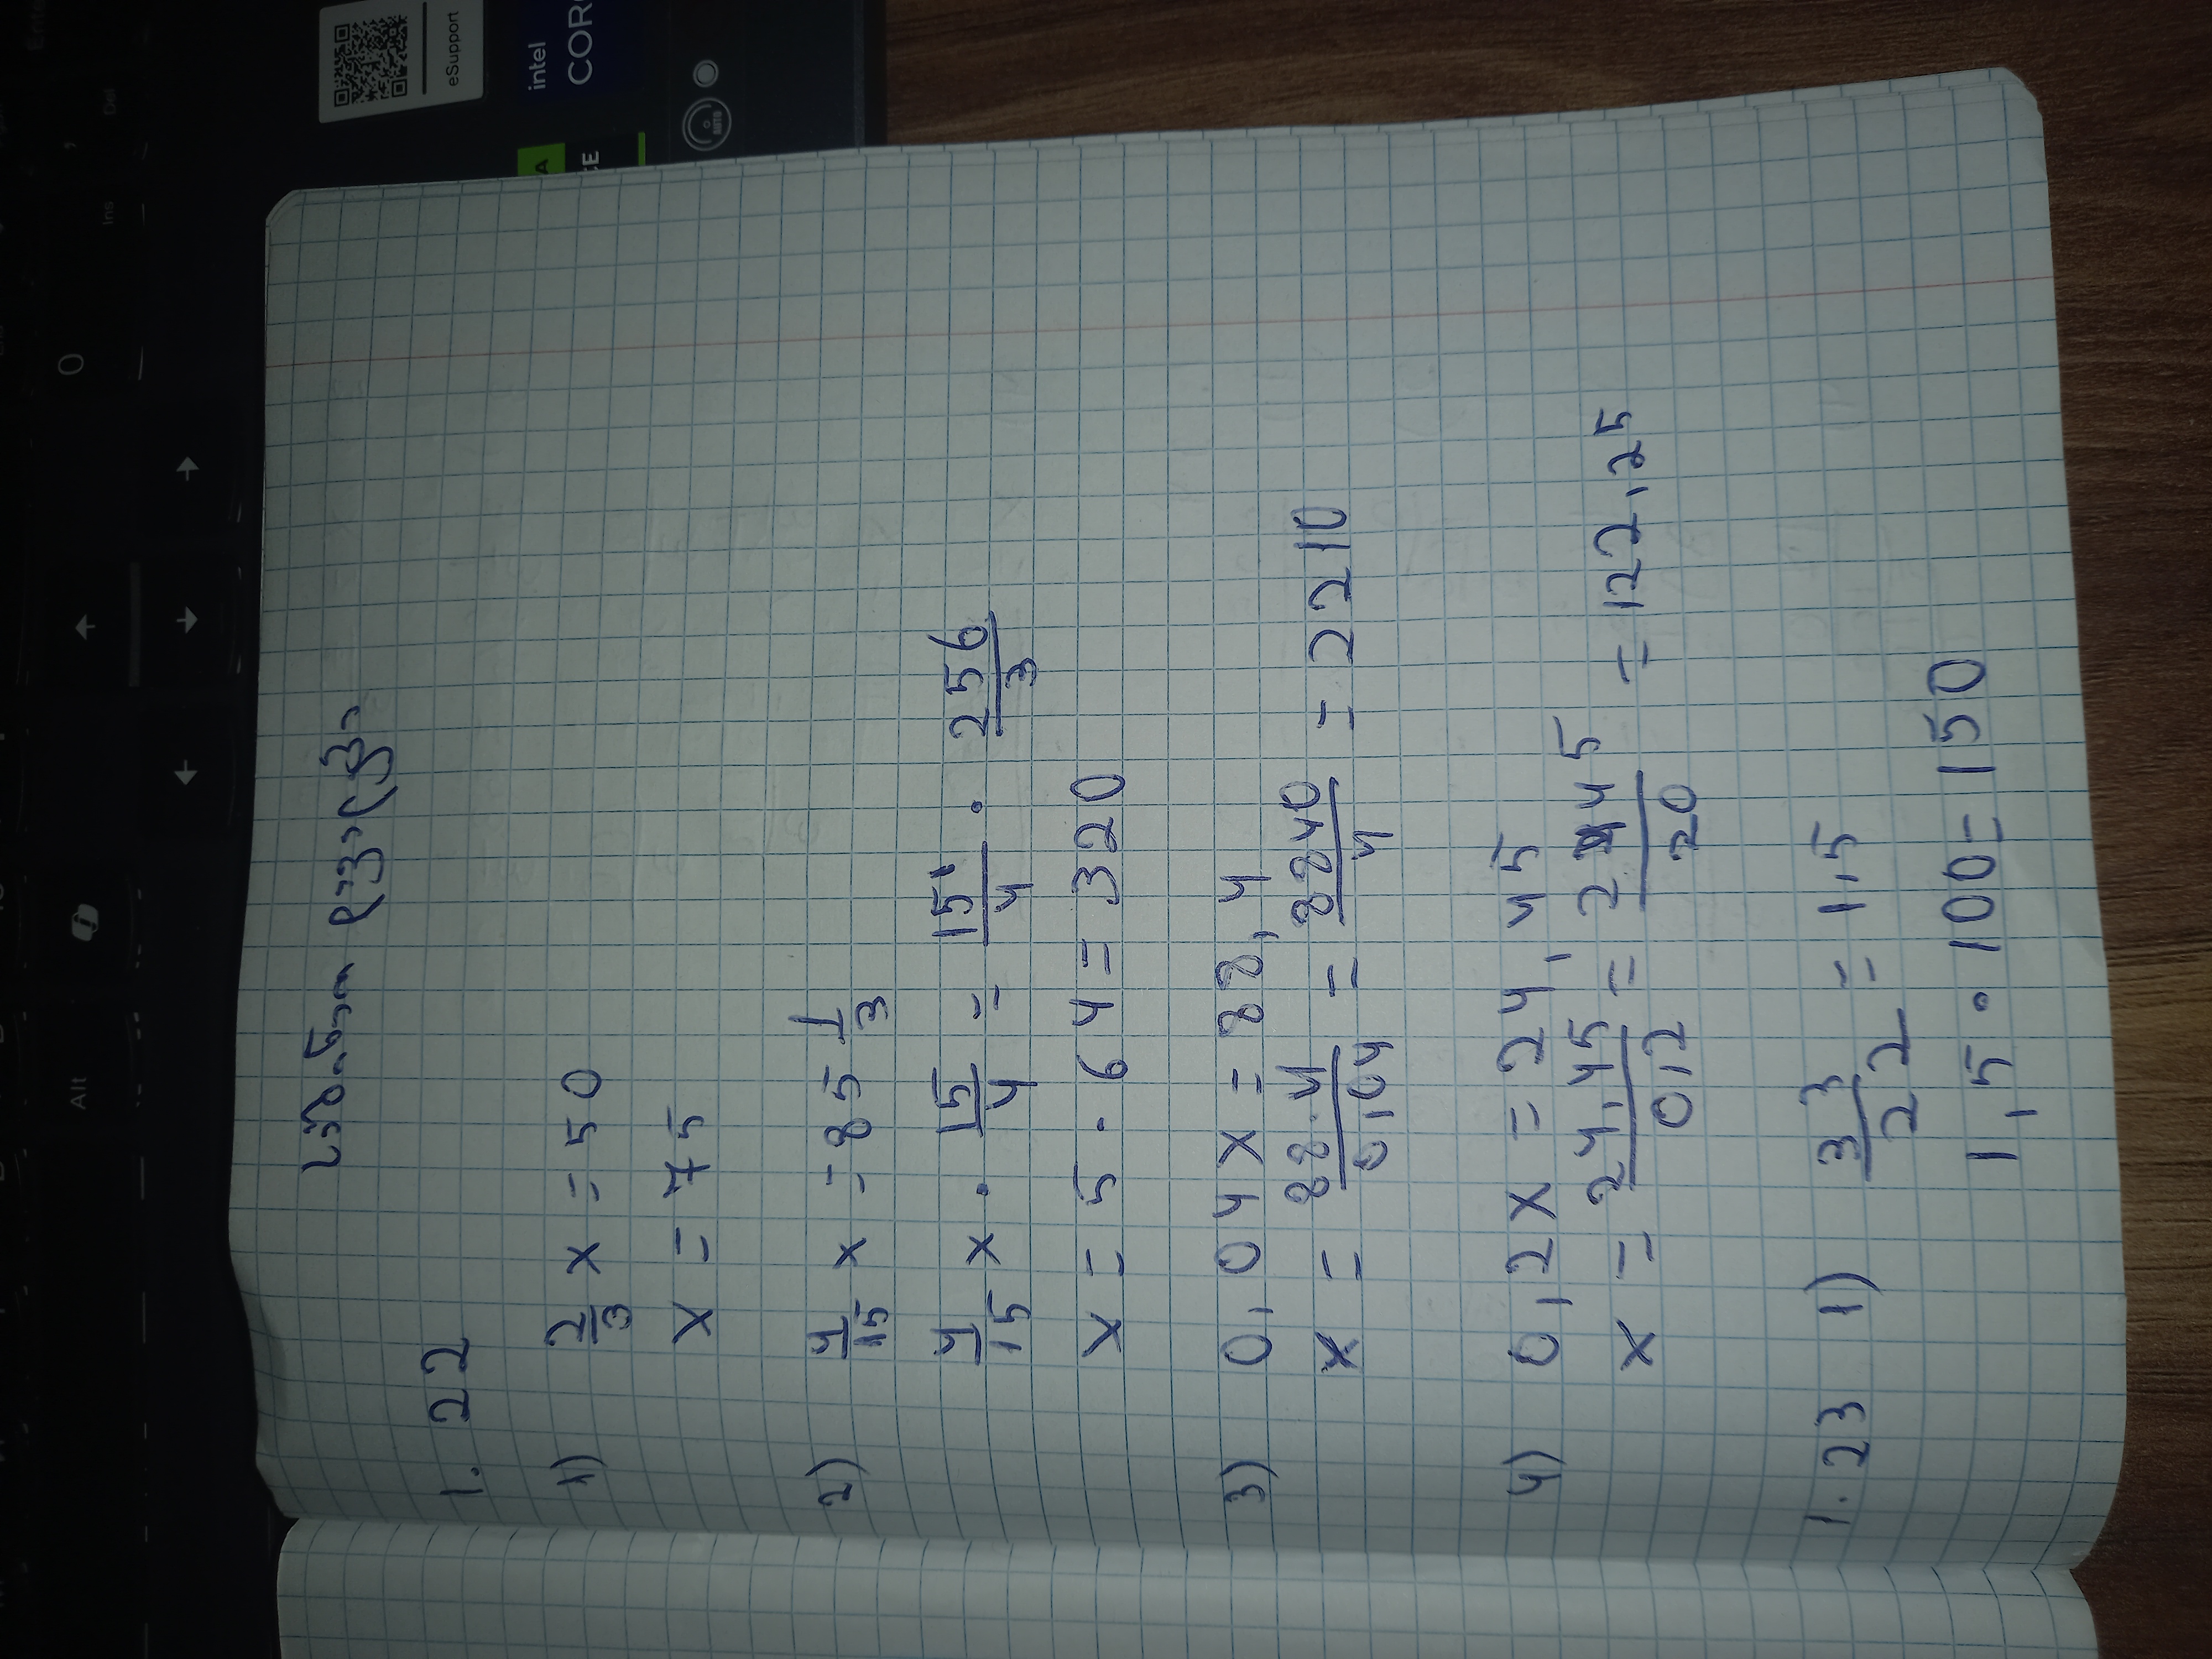 Alt
0
Ins
Del
Enter
↑
← ↓ →
eSupport
intel
COR
AUTO
საშინაო დავალება
1. 22
1) 2/3 x = 50
x = 75
2) 4/15 x = 85 1/3
4/15 x · 15/4 = 15/4 · 256/3
x = 5 · 64 = 320
3) 0,04x = 88,4
x = 88.4/0,04 = 8840/4 = 2210
4) 0,2x = 24,45
x = 24,45/0,2 = 2445/20 = 122,25
1. 23 1) 33/22 = 1,5
1,5 · 100 = 150